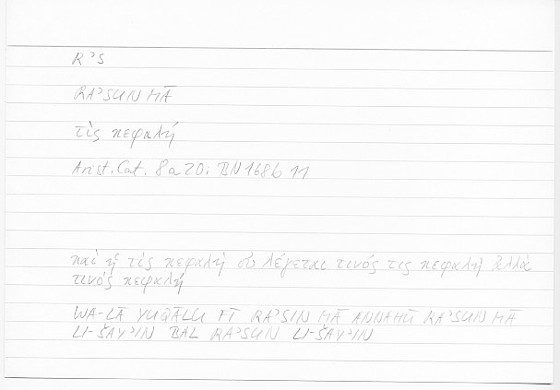 RʾS
RAʾSUN MĀ
τὶς κεφαλή
Arist. Cat. 8a20: BN 168b 11
καὶ ἡ τὶς κεφαλὴ οὐ λέγεται τινός τις κεφαλὴ ἀλλὰ
τινὸς κεφαλή
WA-LĀ YUQĀLU FĪ RAʾSIN MĀ ANNAHŪ RAʾSUN MĀ
LI-ŠAYʾIN BAL RAʾSUN LI-ŠAYʾIN